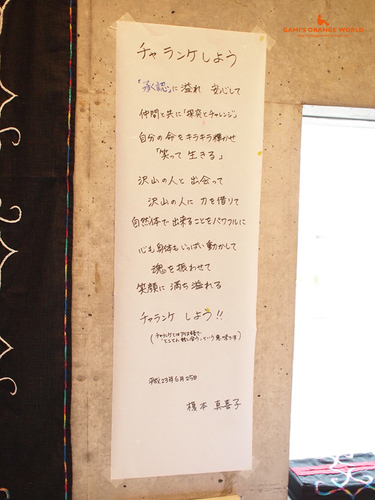 GAMI'S ORANGE WORLD
チャランケしよう
「承認」に溢れ 安心して
仲間と共に「探究とチャレンジ」
自分の命をキラキラ輝かせ
「笑って生きる」
沢山の人と出会って
沢山の人に力を借りて
自然体で出来ることをパワフルに
心も身体もいっぱい動かして
魂を振わせて
笑顔に満ち溢れる
チャランケ しよう!!
(チャランケとはアイヌ語で
「とことん話し合う」という意味です)
平成23年6月25日
榎本 真喜子